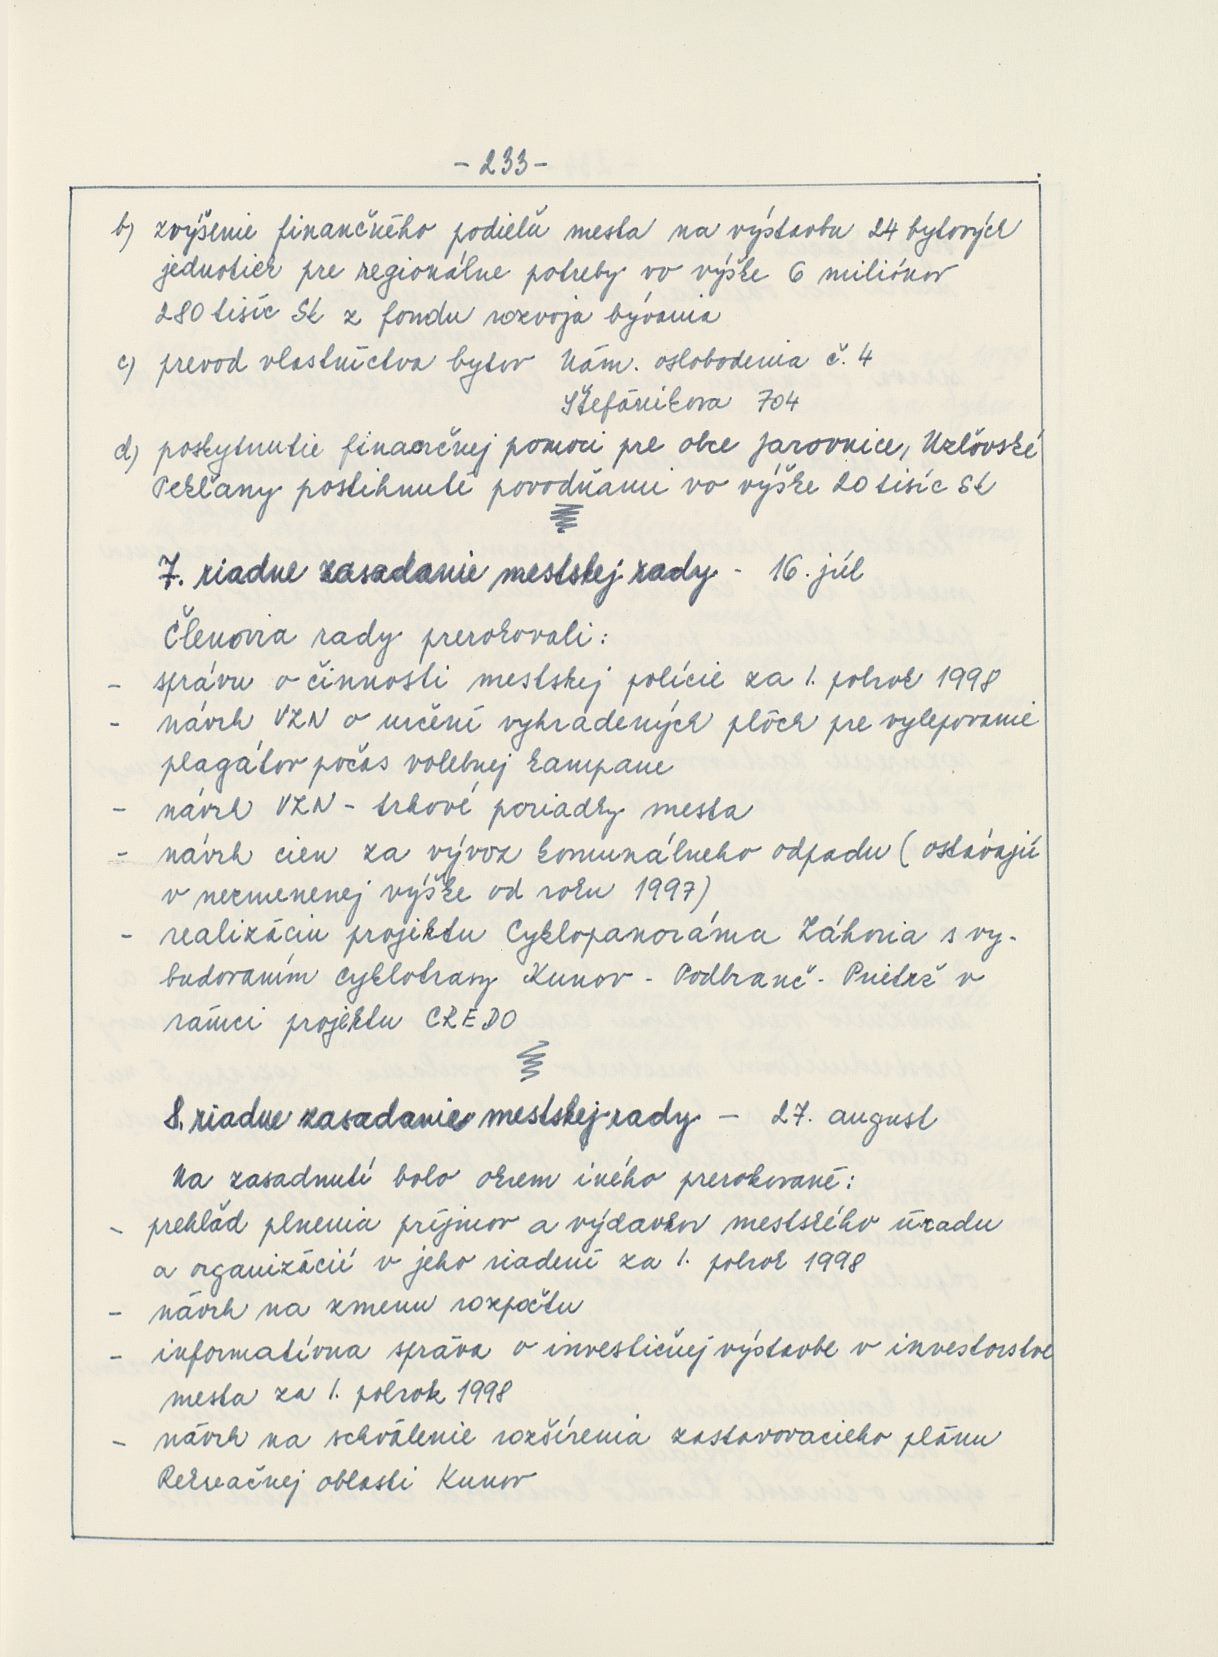 - 233 -
b) zvýšenie finančného podielu mesta na výstavbu 24 bytových
jednotiek pre regionálne potreby vo výške 6 miliónov
280 tisíc Sk z fondu rozvoja bývania
c) prevod vlastníctva bytov Nám. oslobodenia č. 4
Štefánikova 704
d) poskytnutie finančnej pomoci pre obce Jarovnice, Uzlovské
Pekľany postihnuté povodňami vo výške 20 tisíc Sk
7. riadne zasadanie mestskej rady - 16. júl
Členovia rady prerokovali:
- správu o činnosti mestskej polície za 1. polrok 1998
- návrh VZN o určení vyhradených plôch pre vylepovanie
plagátov počas volebnej kampane
- návrh VZN - trhové poriadky mesta
- návrh cien za vývoz komunálneho odpadu (ostávajú
v nezmenenej výške od roku 1997)
- realizáciu projektu Cyklopanoráma Záhoria s vy-
budovaním cyklotrasy Kunov - Podbranč - Prietrž v
rámci projektu CREDO
8. riadne zasadanie mestskej rady - 27. august
Na zasadnutí bolo okrem iného prerokované:
- prehľad plnenia príjmov a výdavkov mestského úradu
a organizácií v jeho riadení za 1. polrok 1998
- návrh na zmenu rozpočtu
- informatívna správa o investičnej výstavbe v investorstve
mesta za 1. polrok 1998
- návrh na schválenie rozšírenia zastavovacieho plánu
Rekreačnej oblasti Kunov